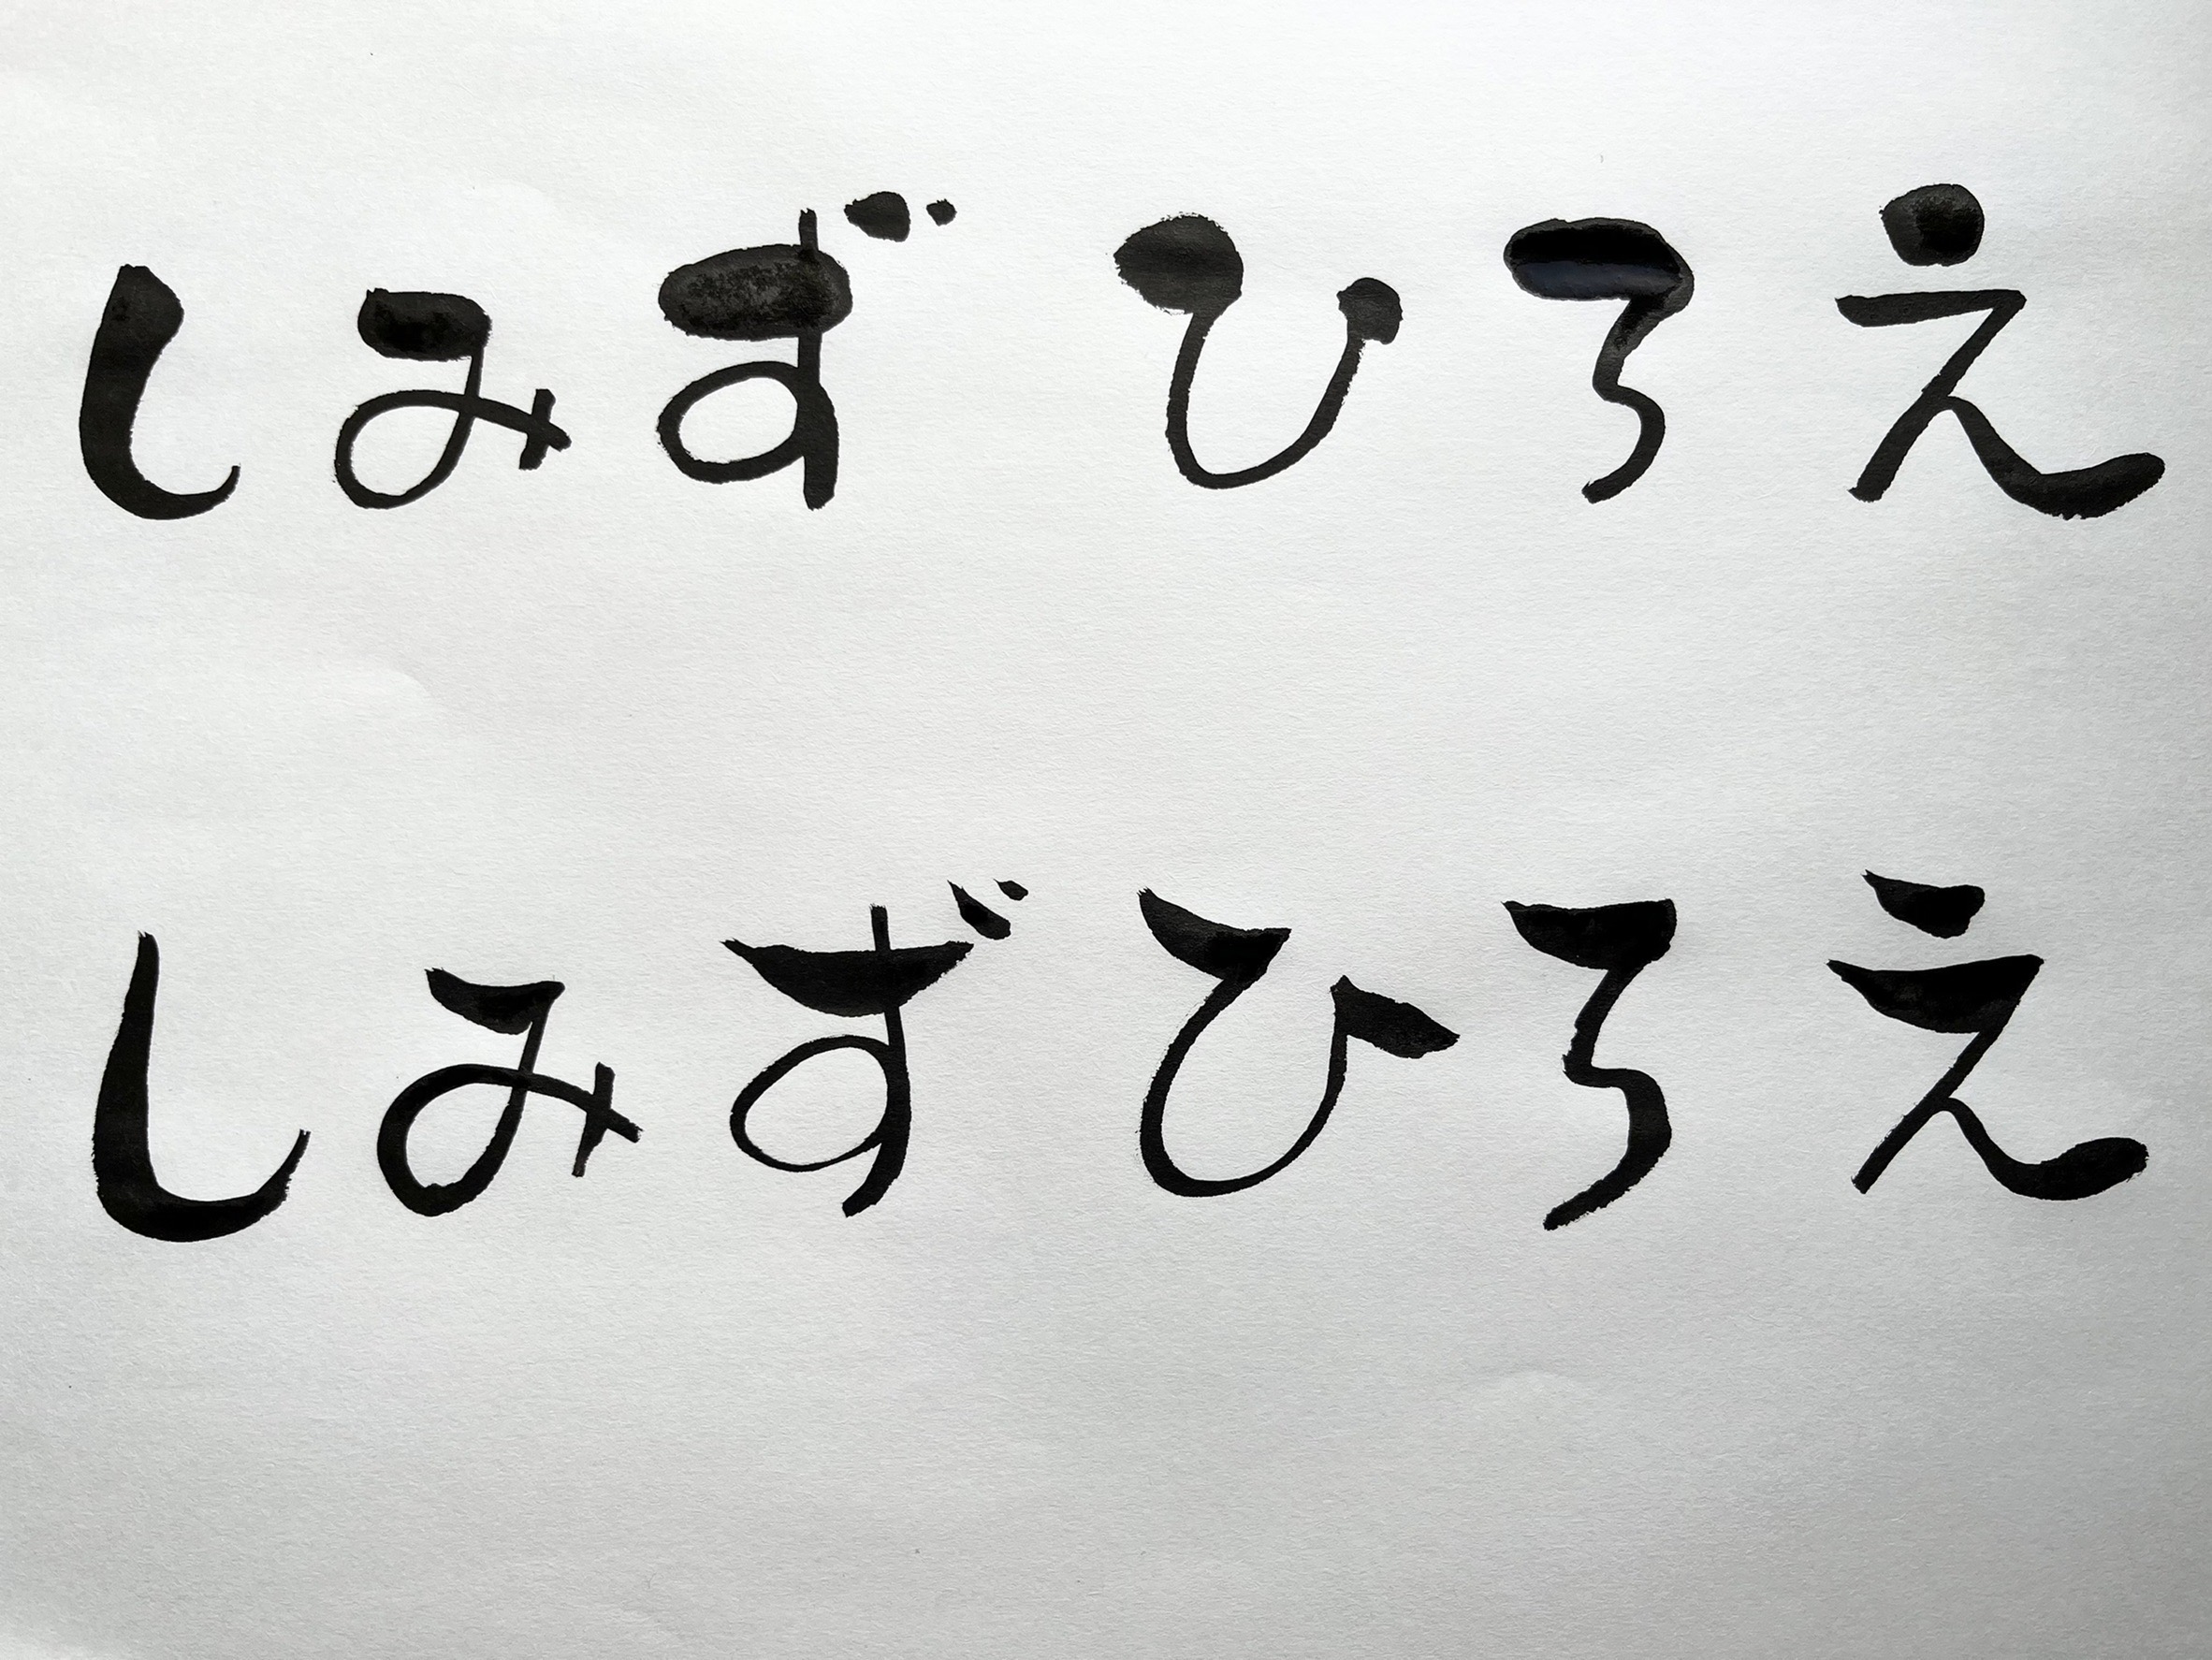 しみずひろえ
しみずひろえ